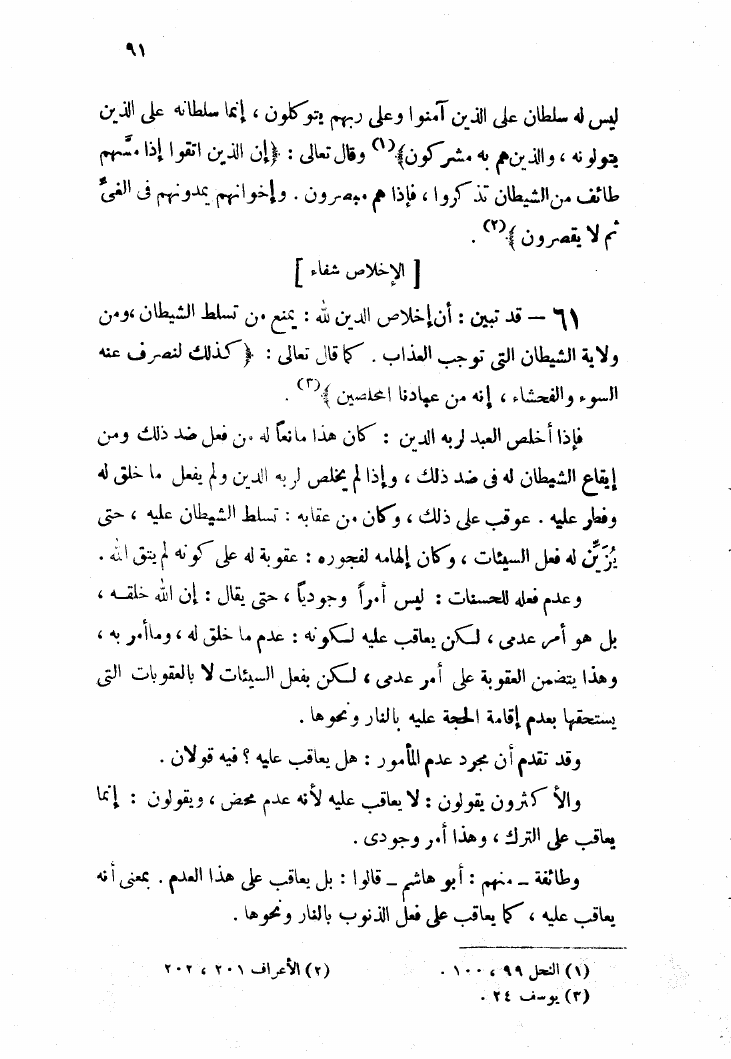 ٩١
ليس له سلطان على الذين آمنوا وعلى ربهم يتوكلون ، إنما سلطانه على الذين
يتولونه ، والذين هم به مشركون﴾(١) وقال تعالى : ﴿إن الذين اتقوا إذا مسَّهم
طائف من الشيطان تذكروا ، فإذا هم مبصرون . وإخوانهم يمدونهم فى الغىِّ
ثم لا يقصرون﴾(٢) .
[ الإخلاص شفاء ]
٦١ — قد تبين : أن إخلاص الدين لله : يمنع من تسلط الشيطان ، ومن
ولاية الشيطان التى توجب العذاب . كما قال تعالى : ﴿كذلك لنصرف عنه
السوء والفحشاء ، إنه من عبادنا المخلصين﴾(٣) .
فإذا أخلص العبد لربه الدين : كان هذا مانعاً له من فعل ضد ذلك ومن
إيقاع الشيطان له فى ضد ذلك ، وإذا لم يخلص لربه الدين ولم يفعل ما خلق له
وفطر عليه . عوقب على ذلك ، وكان من عقابه : تسلط الشيطان عليه ، حتى
يُزَيِّن له فعل السيئات ، وكان إلهامه لفجوره : عقوبة له على كونه لم يتق الله .
وعدم فعله للحسنات : ليس أمراً وجودياً ، حتى يقال : إن الله خلقـه ،
بل هو أمر عدمى ، لكن يعاقب عليه لكونه : عدم ما خلق له ، وما أمر به ،
وهذا يتضمن العقوبة على أمر عدمى ، لكن بفعل السيئات لا بالعقوبات التى
يستحقها بعدم إقامة الحجة عليه بالنار ونحوها .
وقد تقدم أن مجرد عدم المأمور : هل يعاقب عليه ؟ فيه قولان .
والأكثرون يقولون : لا يعاقب عليه لأنه عدم محض ، ويقولون : إنما
يعاقب على الترك ، وهذا أمر وجودى .
وطائفة – منهم : أبو هاشم – قالوا : بل يعاقب على هذا العدم . بمعنى أنه
يعاقب عليه ، كما يعاقب على فعل الذنوب بالنار ونحوها .
(١) النحل ٩٩ ، ١٠٠ . (٢) الأعراف ٢٠١ ، ٢٠٢
(٣) يوسف ٢٤ .